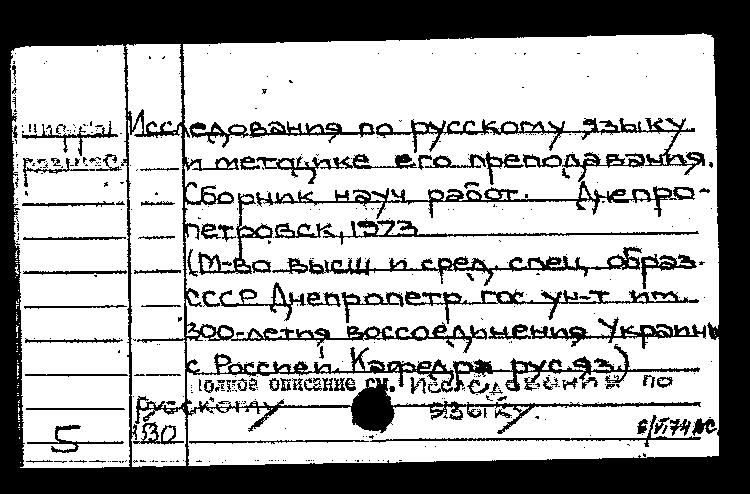 шифры Исследования по русскому языку
размес. и методике его преподавания.
Сборник науч. работ. Днепро-
петровск, 1973
(М-во высш и сред. спец. образ.
СССР Днепропетр. гос. ун-т им.
300-летия воссоединения Украины
с Россией. Кафедра рус.яз.)
полное описание см. Исследования по
русскому языку.
5 1530 6/VI.74